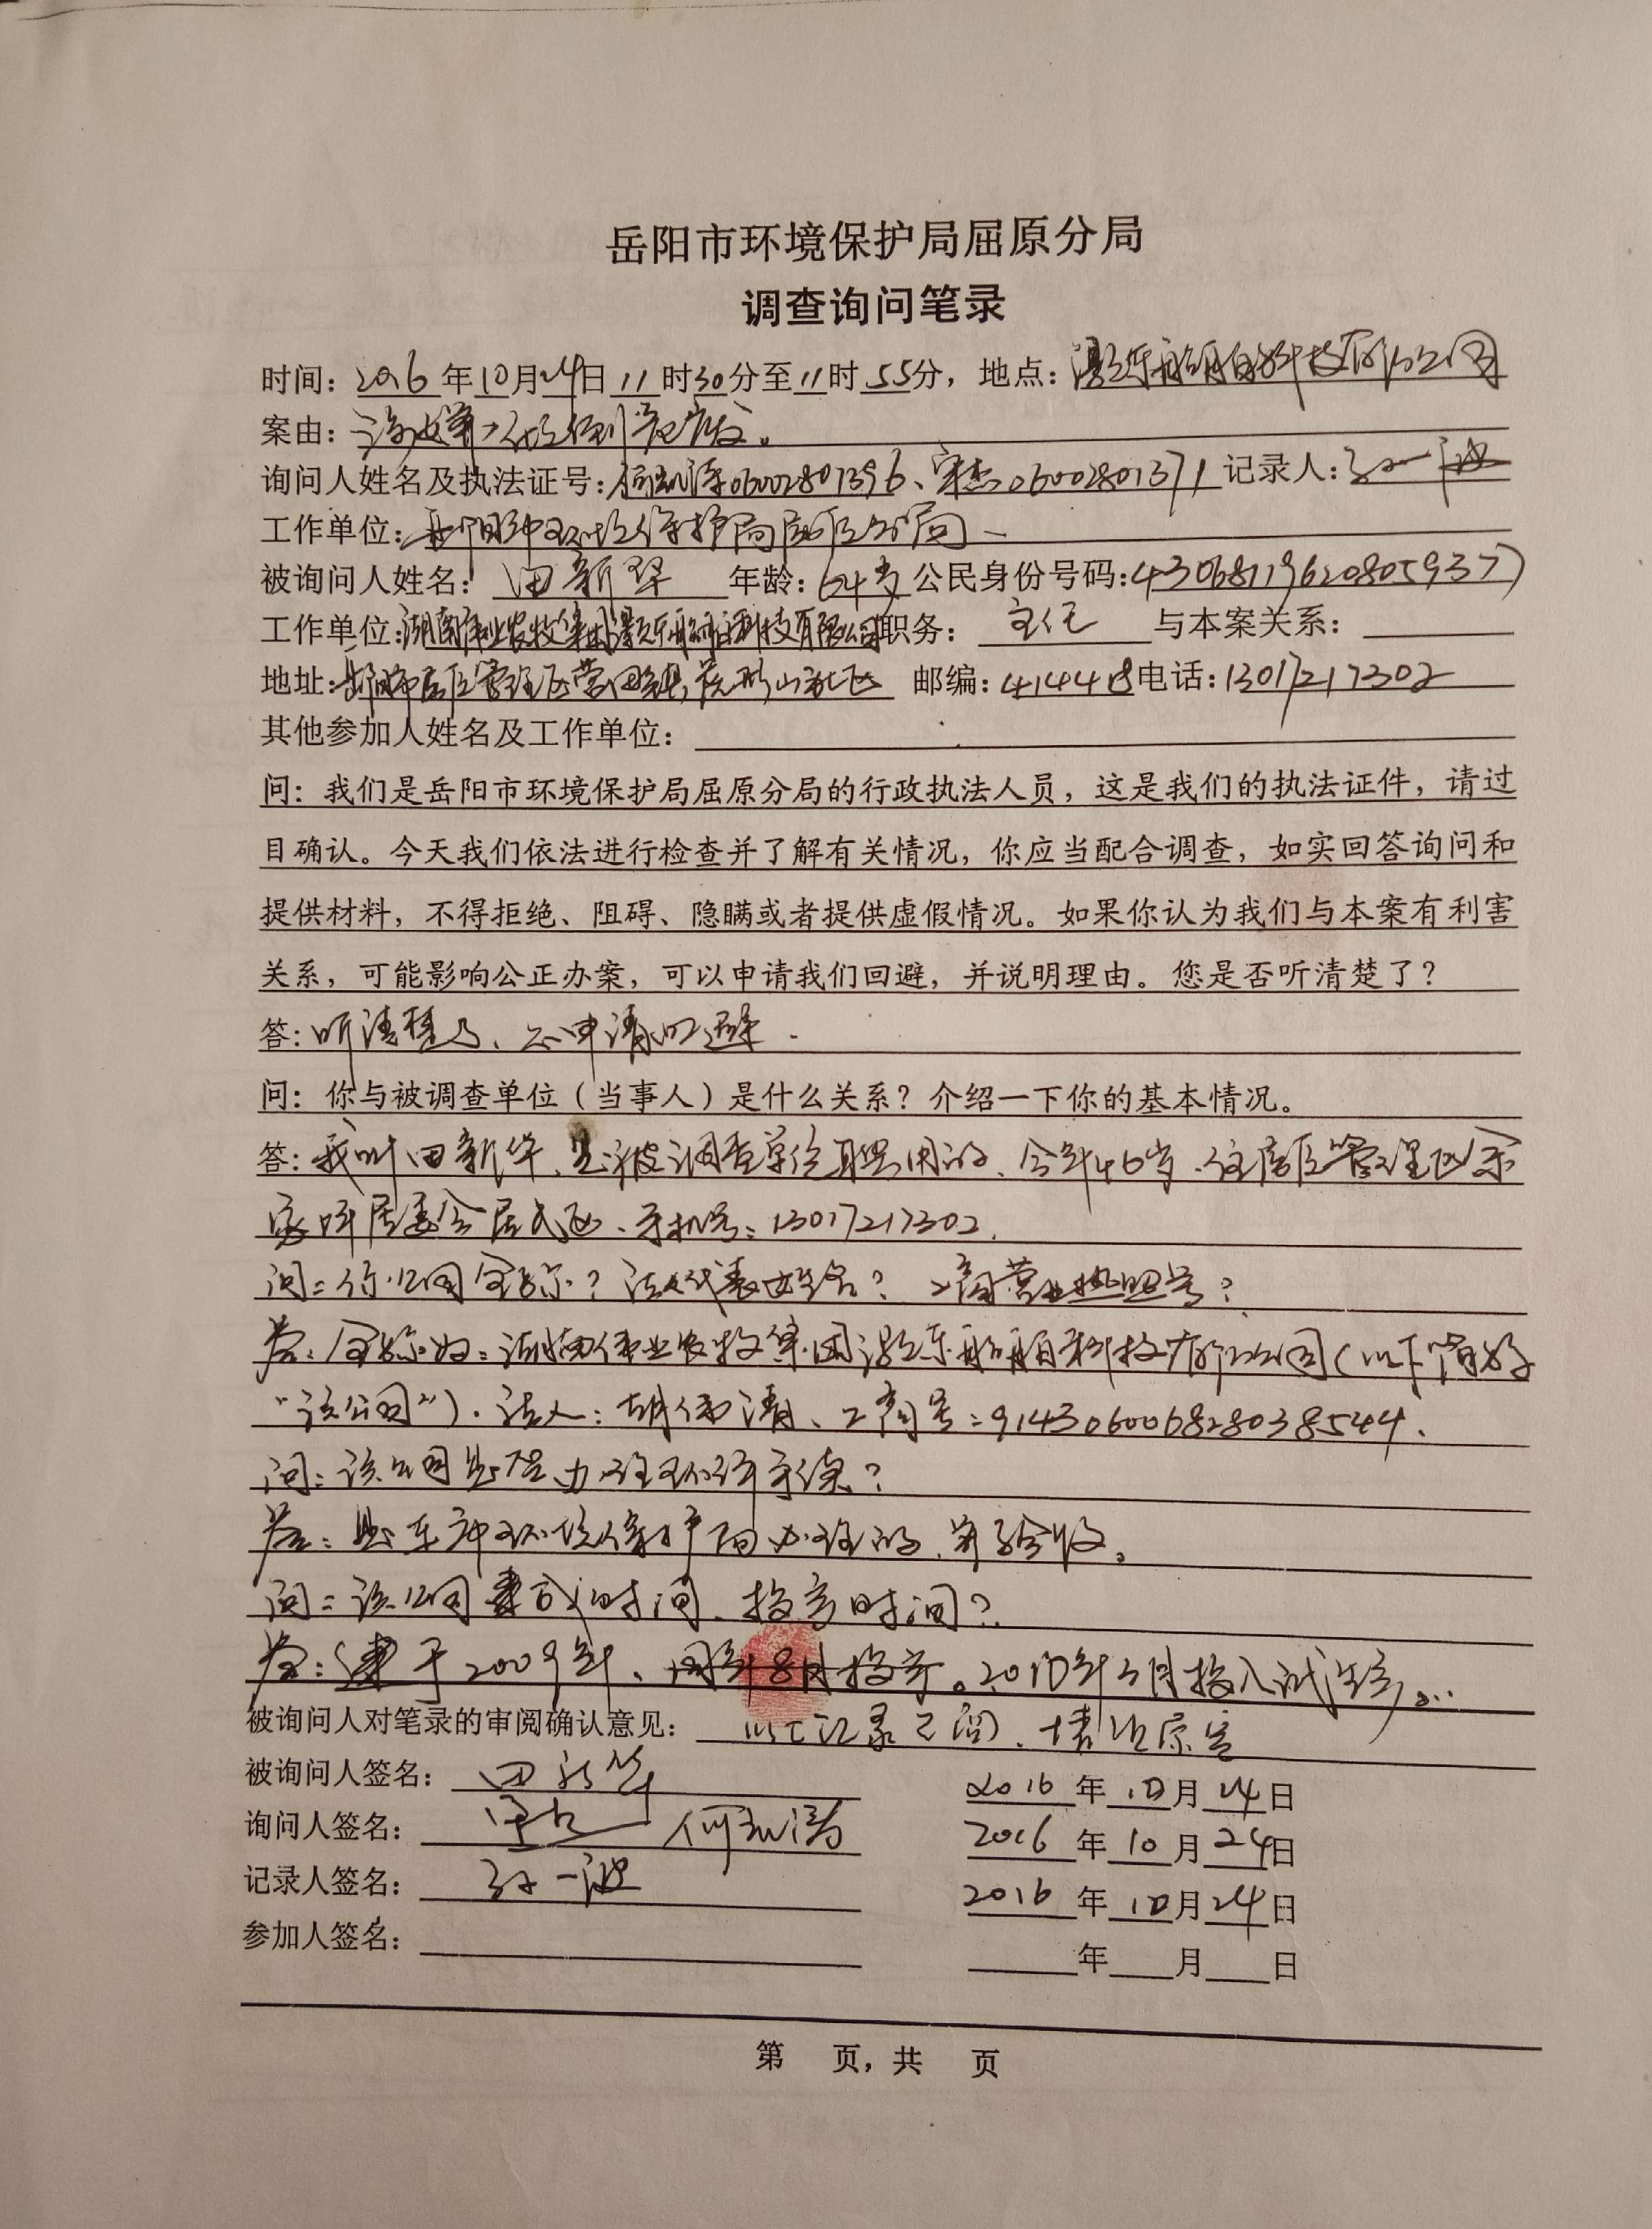 岳阳市环境保护局屈原分局
调查询问笔录
时间：2016年10月24日11时30分至11时55分，地点：船舶科技有限公司
案由：
询问人姓名及执法证号：06002801396、宋杰06002801371 记录人：
工作单位：岳阳市环境保护局屈原分局
被询问人姓名：田新华 年龄：岁 公民身份号码：430681196208059377
工作单位：湖南伟业农牧集团船舶科技有限公司 职务：主任 与本案关系：
地址：岳阳市屈原管理区营田镇山社区 邮编：414418 电话：13017217302
其他参加人姓名及工作单位：
问：我们是岳阳市环境保护局屈原分局的行政执法人员，这是我们的执法证件，请过
目确认。今天我们依法进行检查并了解有关情况，你应当配合调查，如实回答询问和
提供材料，不得拒绝、阻碍、隐瞒或者提供虚假情况。如果你认为我们与本案有利害
关系，可能影响公正办案，可以申请我们回避，并说明理由。您是否听清楚了？
答：听清楚了、不申请回避.
问：你与被调查单位（当事人）是什么关系？介绍一下你的基本情况。
答：我叫田新华、是被调查单位聘用的、今年46岁、住屈原管理区余
家坪居委会居民区、手机号：13017217302.
问：你公司全称？法人代表姓名？工商营业执照号？
答：全称为：湖南伟业农牧集团船舶科技有限公司（以下简称
“该公司”）.法人：胡伟清、工商号：914306006828038544.
问：该公司是否办理环评手续？
答：是在市环境保护局办理的、并验收。
问：该公司建成时间、投产时间？
答：建于2009年、同年8月投产。2010年3月投入试生产。..
被询问人对笔录的审阅确认意见：以上记录已阅、情况属实
被询问人签名：田新华 2016年10月24日
询问人签名：宋杰 2016年10月24日
记录人签名： 2016年10月24日
参加人签名： 年 月 日
第 页，共 页